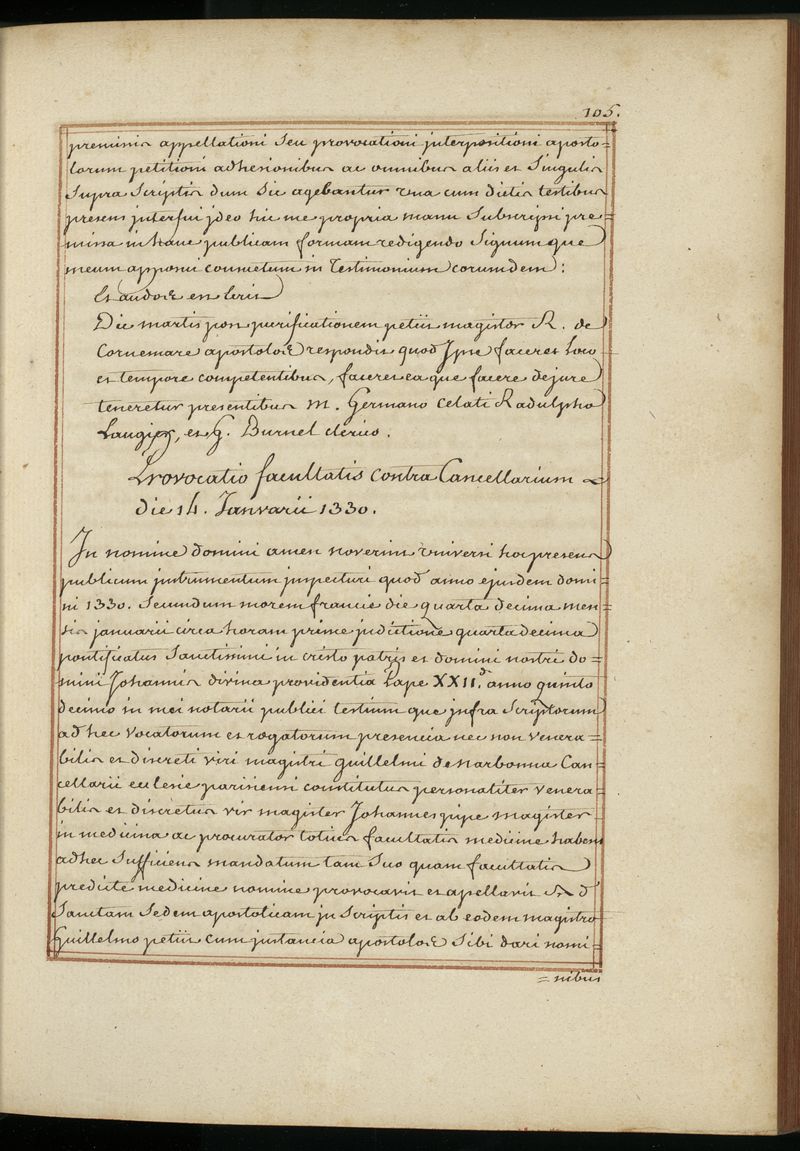 105.
premissis appellationi seu provocationi jnterpositioni aposto=
lorum petitioni adhesionibus ac omnibus aliis et Singulis
Supra Scriptis dum sic agebantur vna cum dictis testibus
presens jnterfui jdeo hic me propria manu Subscripsi pre=
missa in hanc publicam formam redigendo Signum que
meum apposui consuetum in Testimonium eorumdem:
Et au dos
Die martis post purificationem petiit magister R. de
Cornemare apostolos respondit quod Jpse faceret Loco
et tempore competentibus, faceret ea que facere dejure
teneretur presentibus M. Germano celati Radulpho
et G. Burnel clerico.
Provocatio facultatis contra Cancellarium
die 14. Januarii 1330.
In nomine domini amen noverint vniversi hoc presens
publicum jnstrumentum jnspecturi quod anno ejusdem domi=
ni 1330. Secundum morem francie die quarta decima men=
sis januarii circa horam prime jndictione quarta decima
pontificatus Sanctissimi in cristo patris et domini nostri do=
mini Johannis divina providentia Pape XXII.di anno quinto
decimo in mei notarii publici testium que jnfra Scriptorum
ad hec vocatorum et rogatorum presencia nec non venera=
bilis et discreti viri magistri guillelmi de Narbonna Can=
cellarii ecclesie parisiensi constitutus personaliter venera=
bilis et discretus vir magister Johannes pipe magister
in medicina ac procurator totius facultatis medicine habens
adhec Sufficiens mandatum tam Suo quam facultatis
predicte medicine nomine provocavit et apellavit ad
Sanctam Sedem apostolicam jn Scriptis et ab eodem magistro
Guillelmo petiit cum jnstancia apostolos Sibi dari nomi=
=nibus